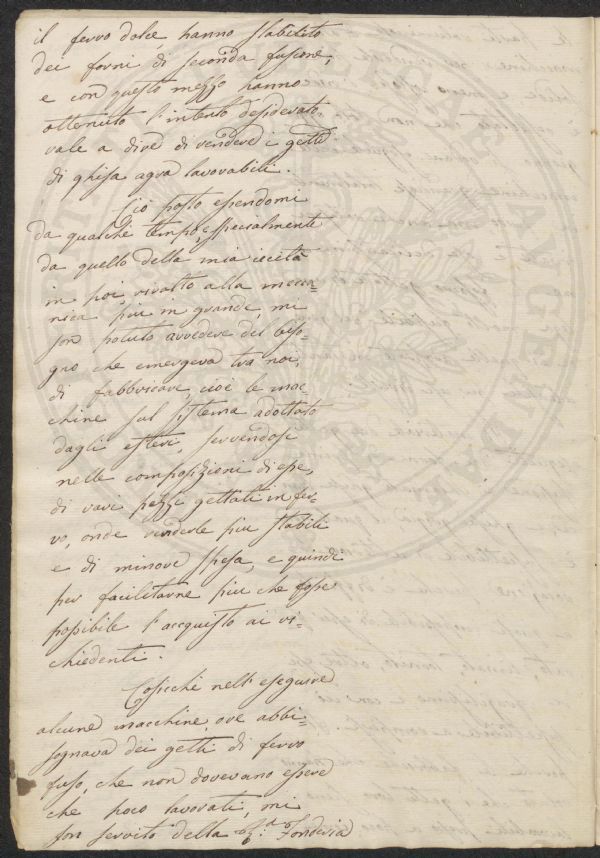 il ferro dolce, hanno stabilito
dei forni di seconda fusione,
e con questo mezzo hanno
ottenuto l'intento desiderato,
vale a dire di vendere i getti
di ghisa agra lavorabili.
Ciò posto essendomi
da qualche tempo, specialmente
da quello della mia
in poi, rivolto alla mecca-
nica più in grande, mi
son potuto avvedere del biso-
gno che emergeva tra noi,
di fabbricare, cioè le mac-
chine sul sistema adottato
dagli esteri, servendosi
nelle composizioni di esse,
di vari pezzi gettati in fer-
ro, onde renderle più stabili
e di minore spesa, e quindi
per facilitarne più che fosse
possibile l'acquisto ai ri-
chiedenti.
Cosicchè nell'eseguire
alcune macchine, ove abbi-
sognava dei getti di ferro
fuso, che non dovevano essere
che poco lavorati, mi
son servito della Fonderia